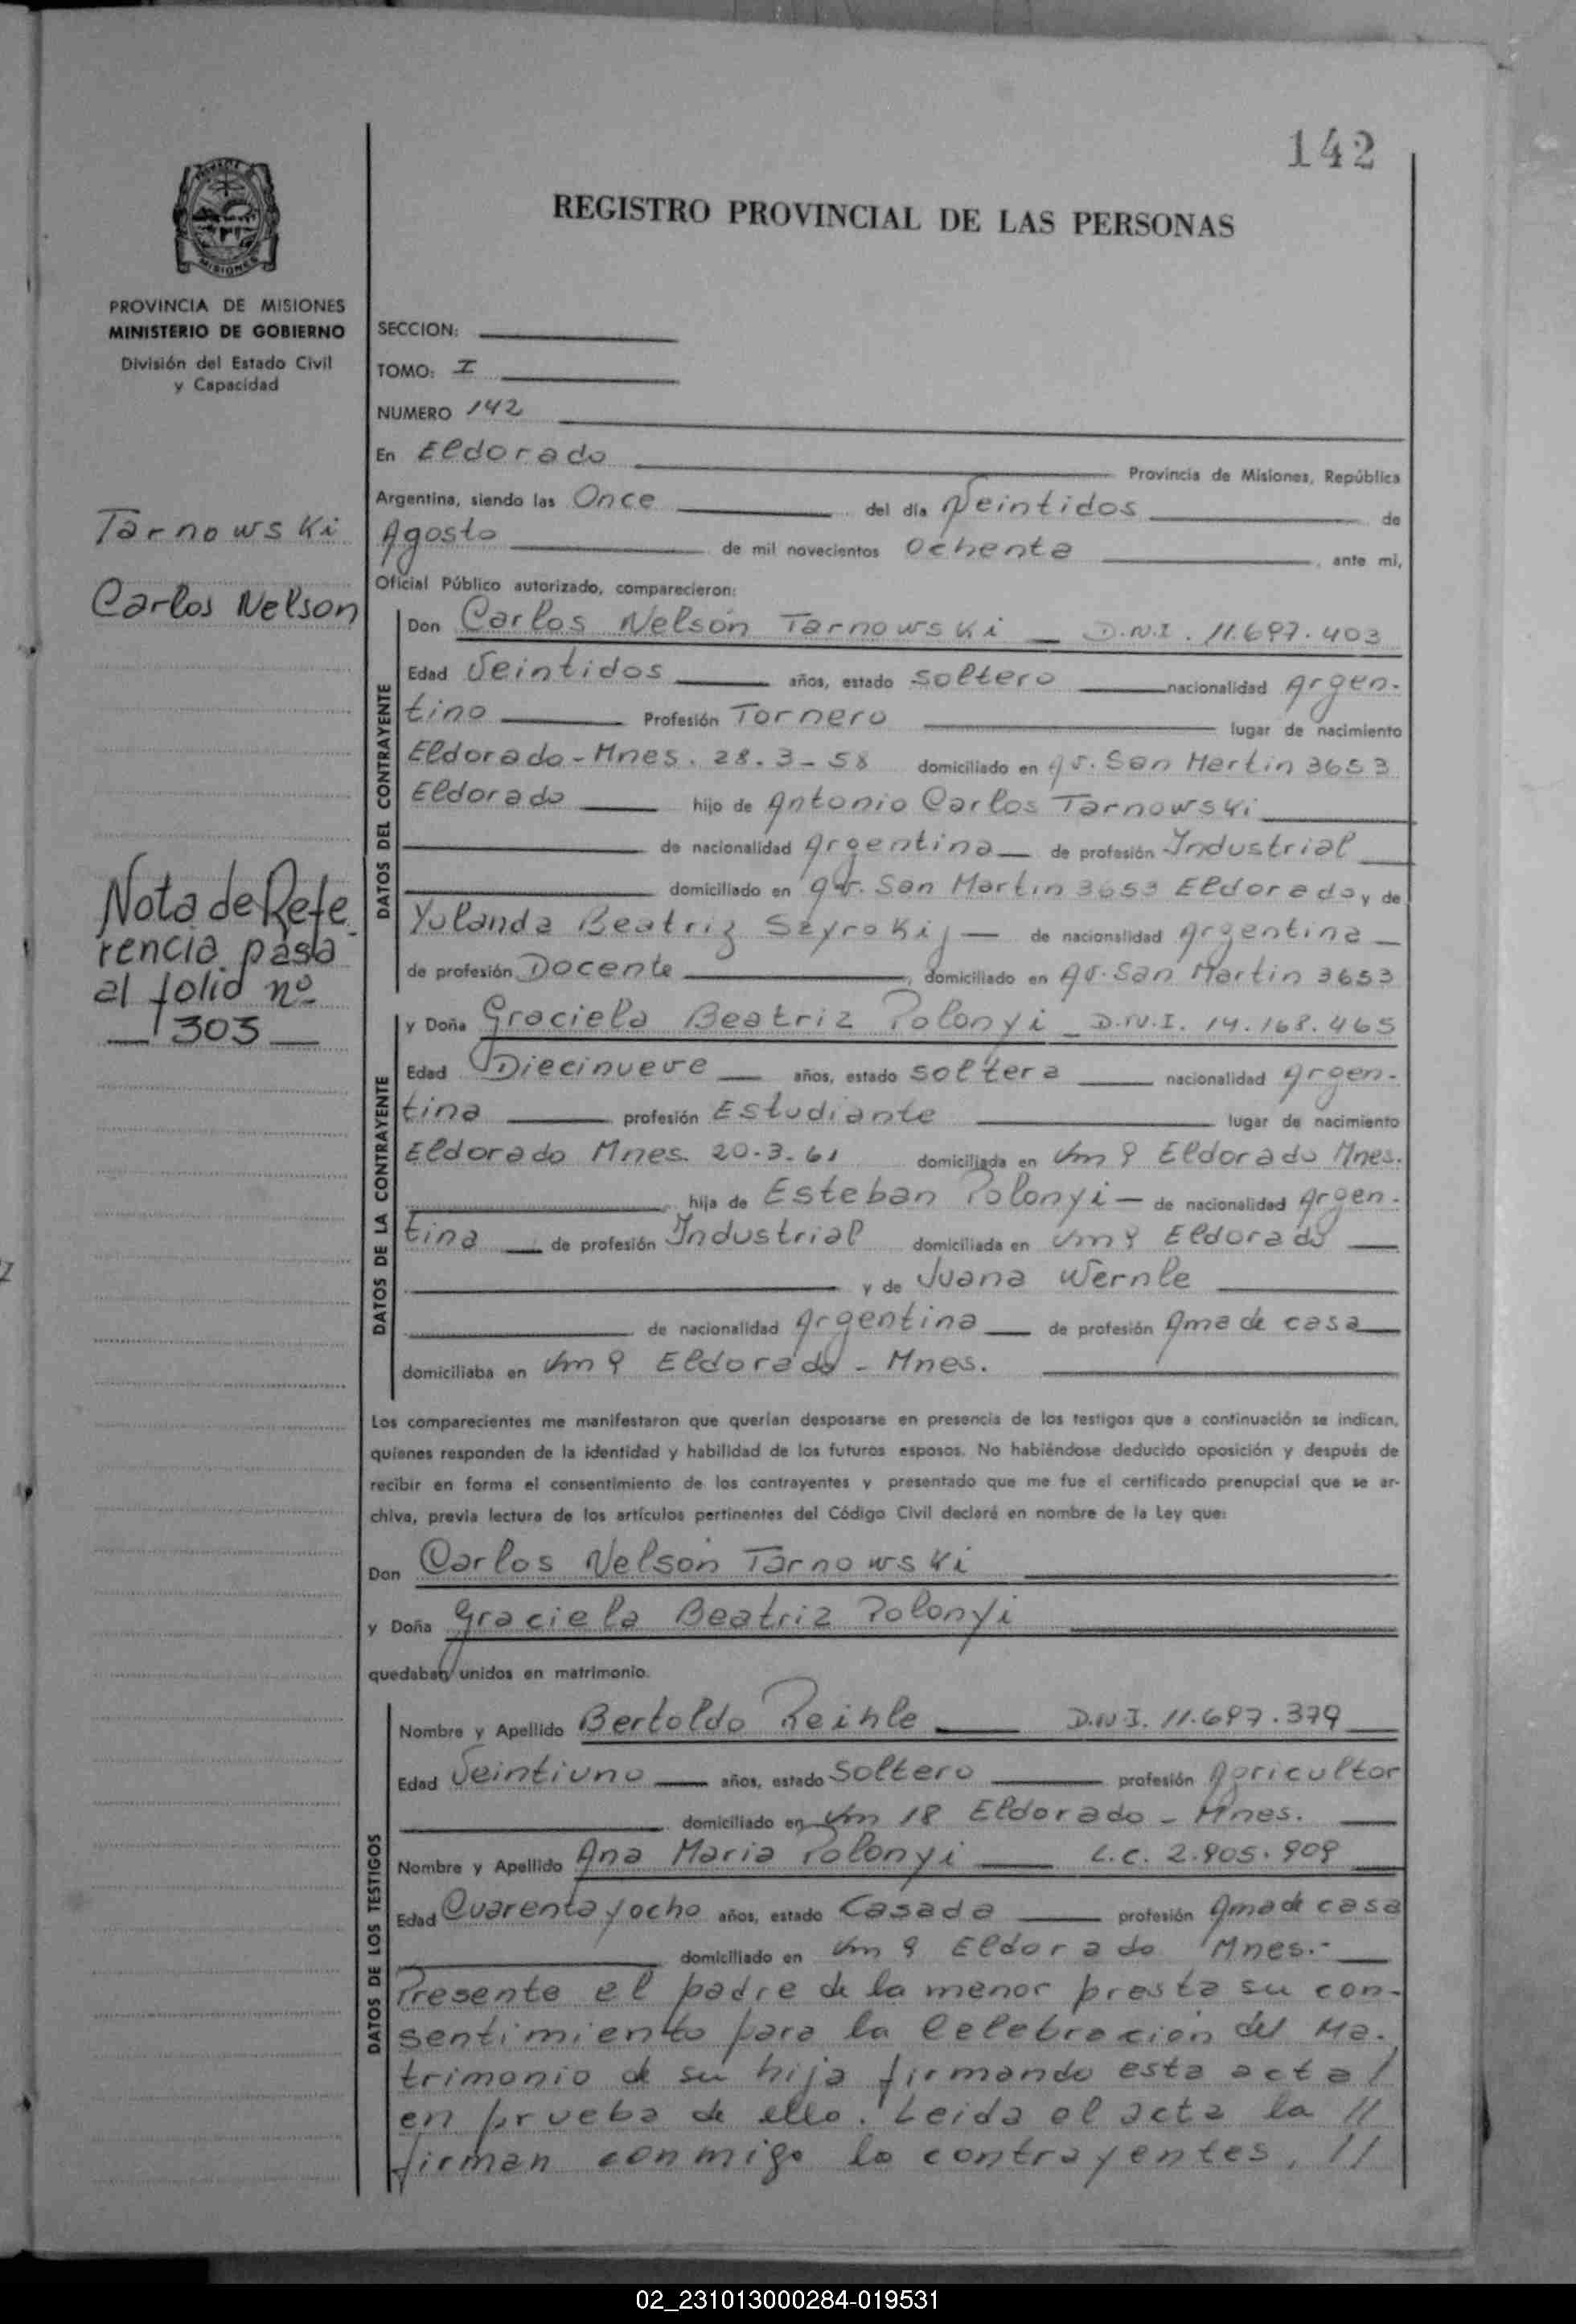 142
REGISTRO PROVINCIAL DE LAS PERSONAS
PROVINCIA DE MISIONES
MINISTERIO DE GOBIERNO
División del Estado Civil
y Capacidad
Tarnowski
Carlos Nelson
Nota de Refe-
rencia pasa
al folio nº
303
SECCION:
TOMO: I
NUMERO 142
En Eldorado Provincia de Misiones, República
Argentina, siendo las Once del día Veintidos de
Agosto de mil novecientos Ochenta, ante mi,
Oficial Público autorizado, comparecieron:
DATOS DEL CONTRAYENTE
Don Carlos Nelson Tarnowski - D.N.I. 11.697.403
Edad Veintidos años, estado soltero nacionalidad Argen-
tino Profesión Tornero lugar de nacimiento
Eldorado - Mnes. 28.3-58 domiciliado en Av. San Martin 3653
Eldorado hijo de Antonio Carlos Tarnowski
de nacionalidad Argentina de profesión Industrial
domiciliado en Av. San Martin 3653 Eldorado y de
Yolanda Beatriz Szyrokij de nacionalidad Argentina
de profesión Docente, domiciliado en Av. San Martin 3653
DATOS DE LA CONTRAYENTE
y Doña Graciela Beatriz Polonyi - D.N.I. 14.168.465
Edad Diecinueve años, estado soltera nacionalidad Argen-
tina profesión Estudiante lugar de nacimiento
Eldorado Mnes. 20-3-61 domiciliada en Km 9 Eldorado Mnes.
hija de Esteban Polonyi - de nacionalidad Argen-
tina de profesión Industrial domiciliada en Km 9 Eldorado
y de Juana Wernle
de nacionalidad Argentina de profesión Ama de casa
domiciliaba en Km 9 Eldorado - Mnes.
Los comparecientes me manifestaron que querían desposarse en presencia de los testigos que a continuación se indican,
quienes responden de la identidad y habilidad de los futuros esposos. No habiéndose deducido oposición y después de
recibir en forma el consentimiento de los contrayentes y presentado que me fue el certificado prenupcial que se ar-
chiva, previa lectura de los artículos pertinentes del Código Civil declaré en nombre de la Ley que:
Don Carlos Nelson Tarnowski
y Doña Graciela Beatriz Polonyi
quedaban unidos en matrimonio.
DATOS DE LOS TESTIGOS
Nombre y Apellido Bertoldo Reihle D.N.I. 11.697.379
Edad Veintiuno años, estado soltero profesión Agricultor
domiciliado en Km 18 Eldorado - Mnes.
Nombre y Apellido Ana Maria Polonyi L.C. 2.905.909
Edad Cuarenta y ocho años, estado Casada profesión Ama de casa
domiciliado en Km 9 Eldorado Mnes.-
Presente el padre de la menor presta su con-
sentimiento para la Celebracion del Ma-
trimonio de su hija firmando esta acta /
en prueba de ello. Leida el acta la //
firman conmigo lo contrayentes, //
02_231013000284-019531